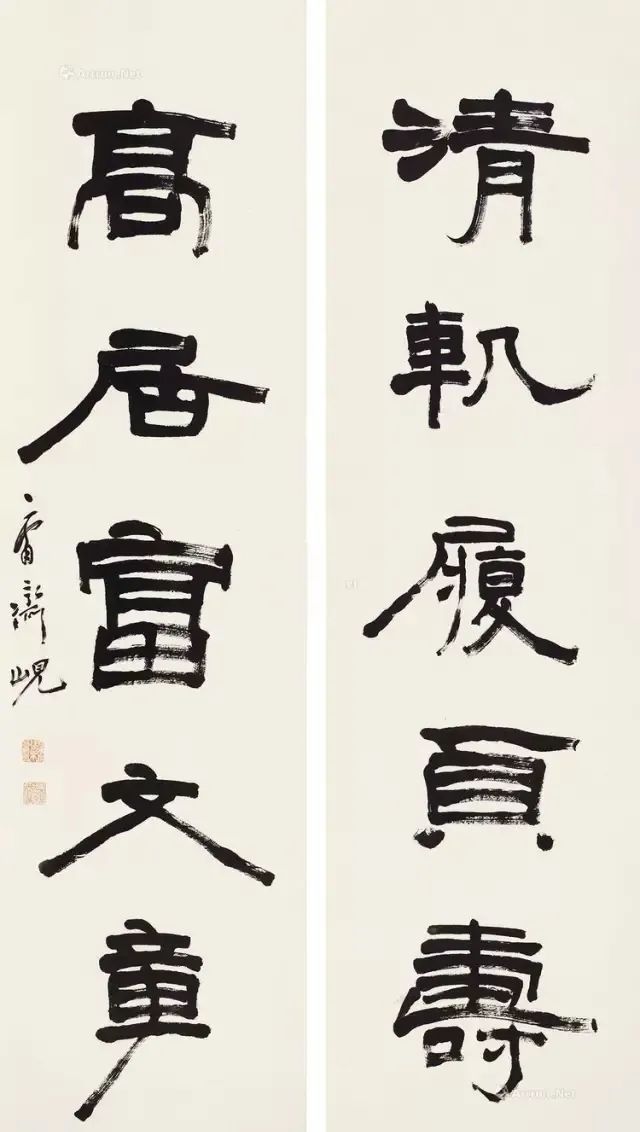 清軌履貞壽
高居富文章
Artron.Net
Artron.Net